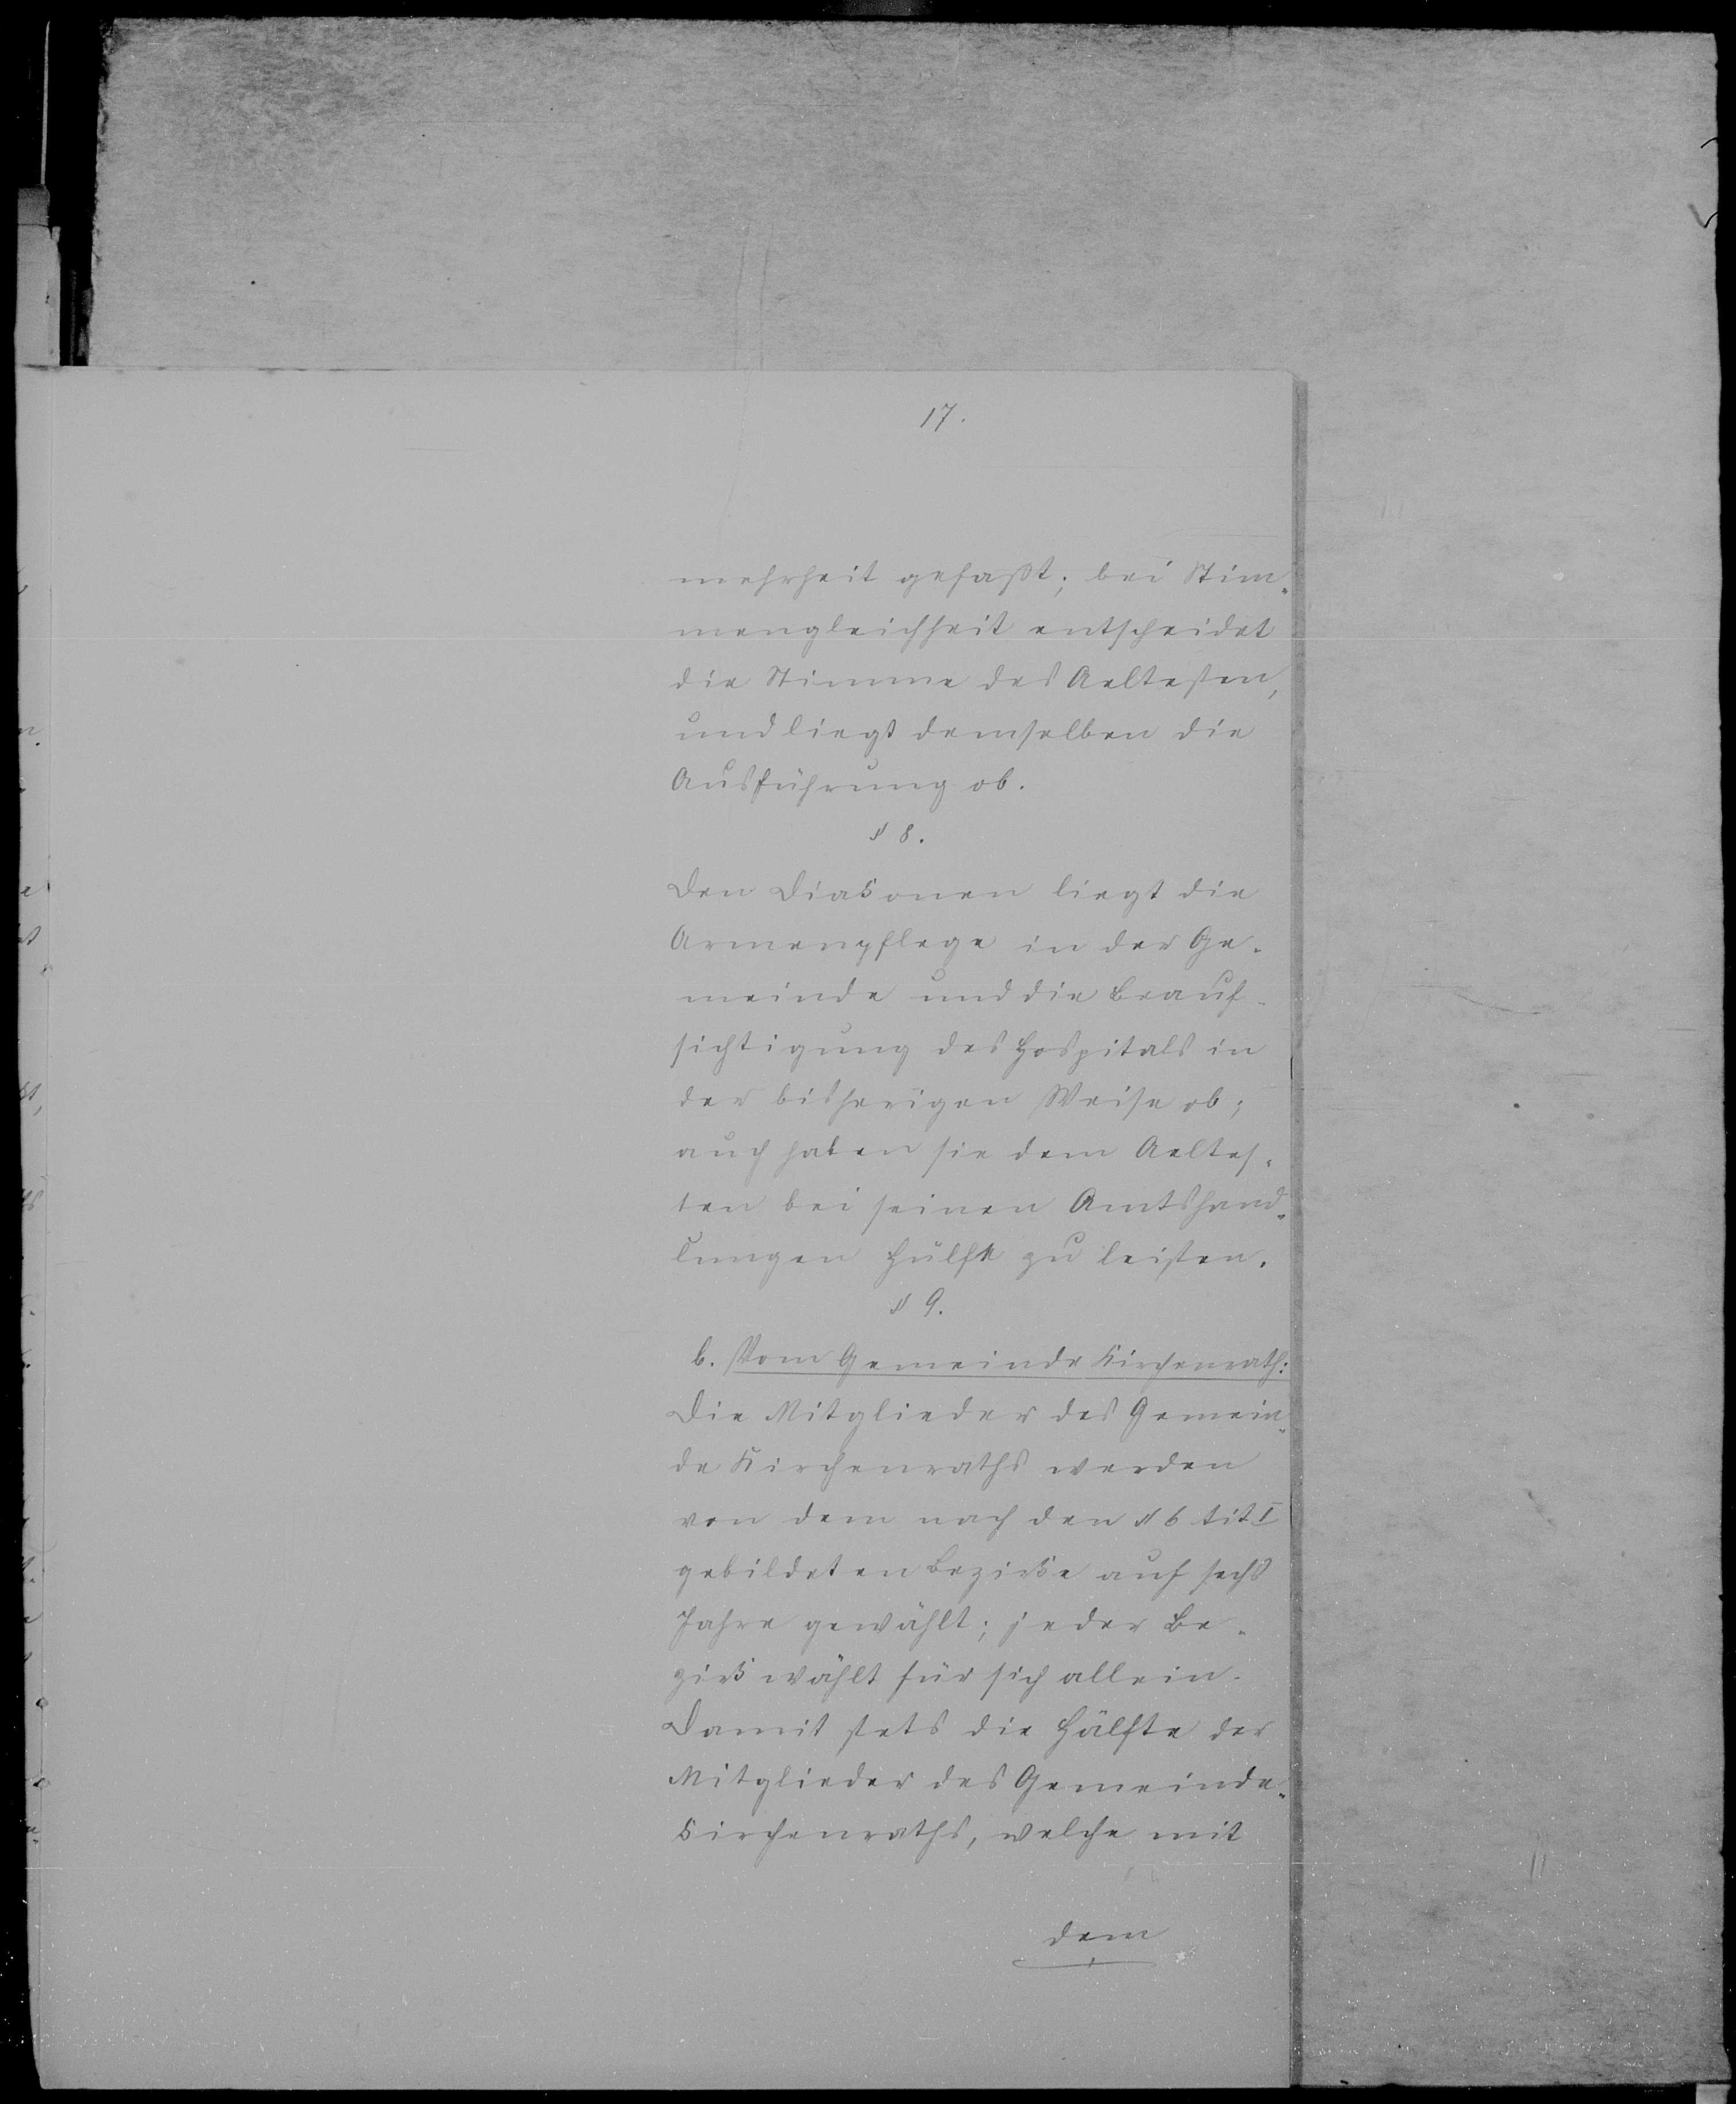 17.
mehrheit gefaßt; bei Stim-
mengleichheit entscheidet
die Stimme des Aeltesten,
und liegt demselben die
Ausführung ob.
§ 8.
Den Diakonen liegt die
Armenpflege in der Ge-
meinde und die Beauf-
sichtigung des Hospitals in
der bisherigen Weise ob;
auch haben sie dem Aeltes-
ten bei seinen Amtshand-
lungen Hülfe zu leisten.
§ 9.
b. Vom Gemeinde Kirchenrath:
Die Mitglieder des Gemein-
de Kirchenraths werden
von dem nach den § 6 tit I
gebildeten Bezirke auf sechs
Jahre gewählt; jeder Be-
zirk wählt für sich allein.
Damit stets die Hälfte der
Mitglieder des Gemeinde-
Kirchenraths, welche mit
dem